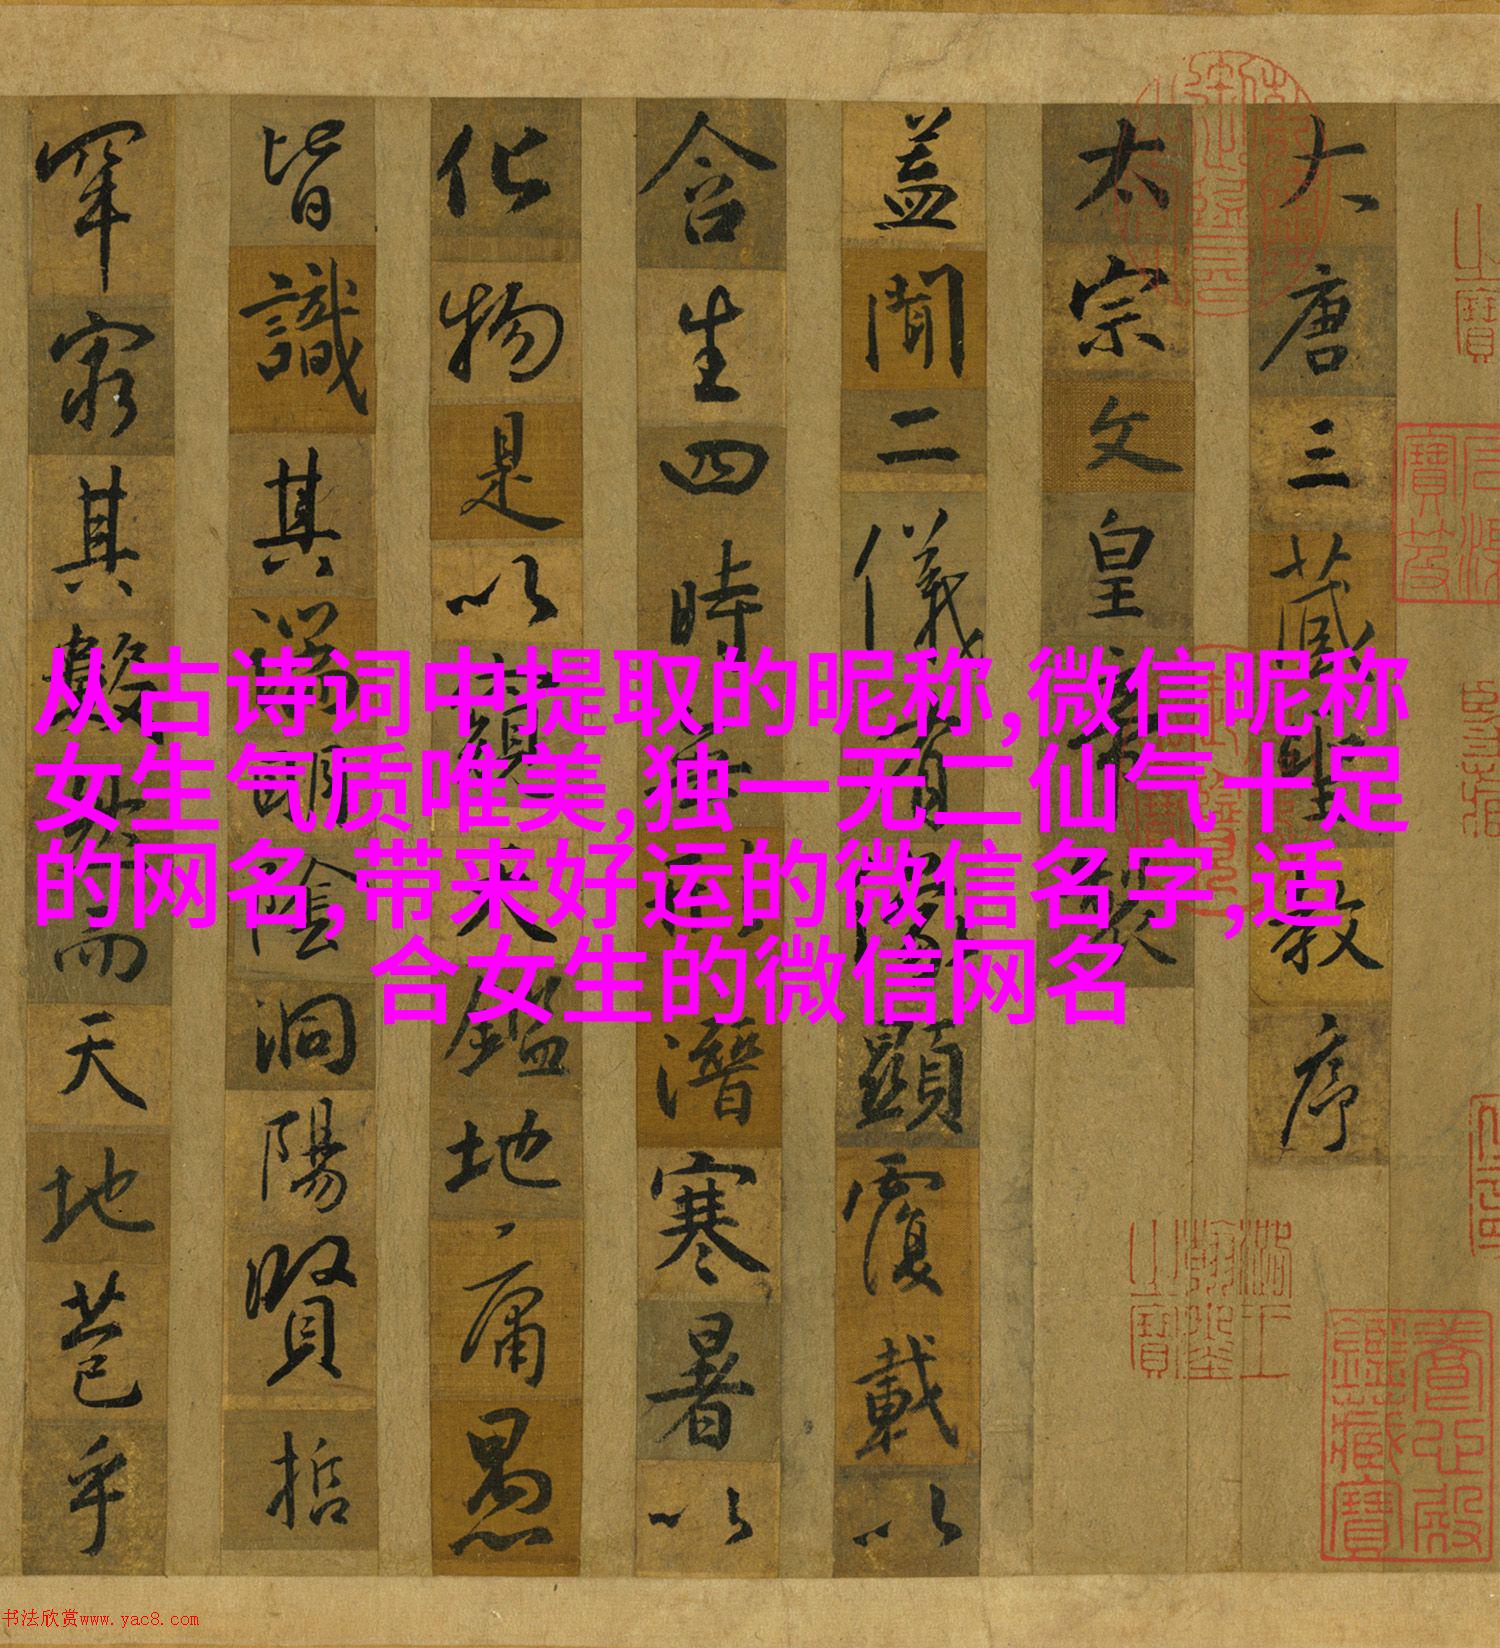 大唐三藏聖教序
太宗文皇帝製
蓋聞二儀有像顯覆載以
含生四時無形潛寒暑以
化物是以窺天鑑地庸愚
皆識其端明陰洞陽賢哲
罕窮其數然而天地苞乎
从古诗词中提取的昵称,微信昵称
女生气质唯美,独一无二仙气十足
的网名,带来好运的微信名字,适
合女生的微信网名
養心殿鑑藏寶
书法欣赏www.yac8.com